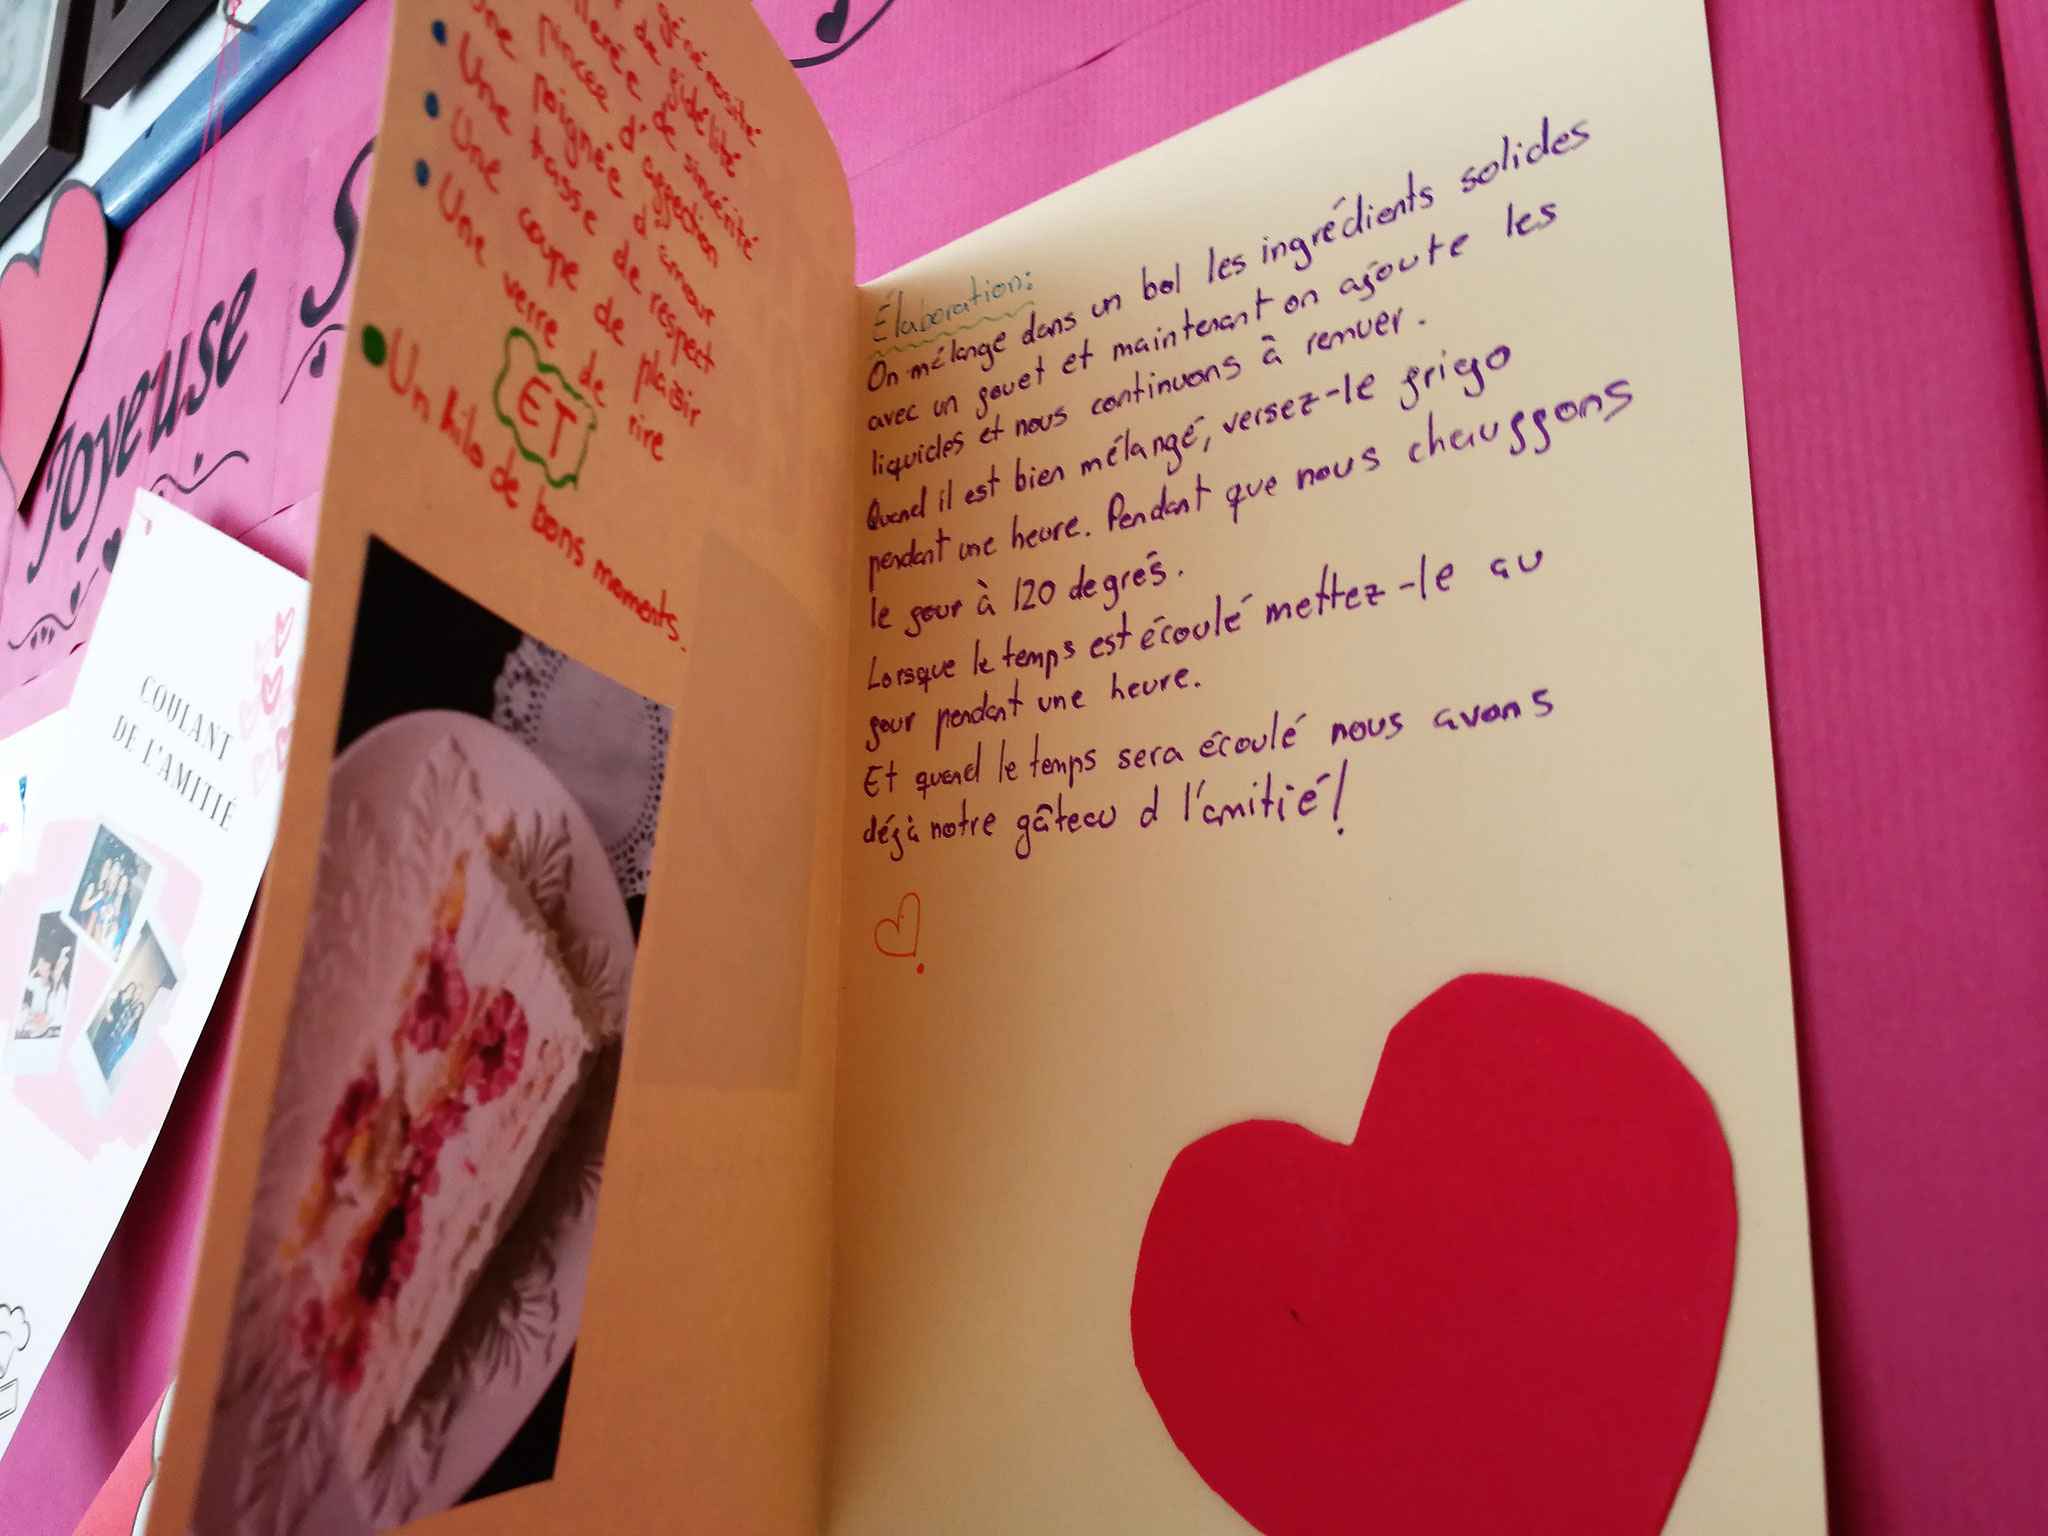 Joyeuse S
COULANT
DE L'AMITIÉ
générosité
de fidélité
de sincérité
pincée d'affection
poignée d'amour
Une tasse de respect
Une coupe de plaisir
Une verre de rire
ET
Un kilo de bons moments.
Élaboration:
On mélange dans un bol les ingrédients solides
avec un fouet et maintenant on ajoute les
liquides et nous continuons à remuer.
Quand il est bien mélangé, versez-le frigo
pendant une heure. Pendant que nous chauffons
le four à 120 degrés.
Lorsque le temps est écoulé mettez-le au
four pendant une heure.
Et quand le temps sera écoulé nous avons
déjà notre gâteau d l'amitié!